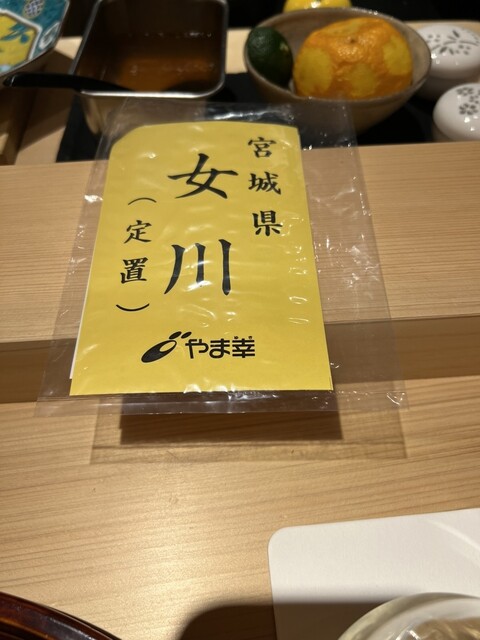 宮城県
女川
（定置）
やま幸